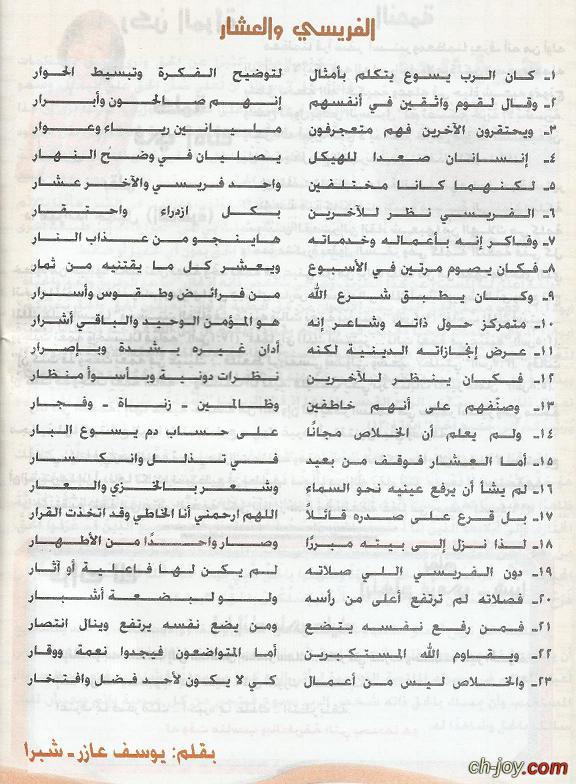 الفريسي والعشار
١- كان الرب يسوع يتكلم بأمثال لتوضيح الفكرة وتبسيط الحوار
٢- وقال لقوم واثقين في أنفسهم إنهم صالحون وأبرار
٣- ويحتقرون الآخرين فهم متعجرفون مليانين رياء وعوار
٤- إنسانان صعدا للهيكل يصليان في وضح النهار
٥- لكنهما كانا مختلفين واحد فريسي والآخر عشار
٦- الفريسي نظر للآخرين بكل ازدراء واحتقار
٧- وفاكر إنه بأعماله وخدماته هاينجو من عذاب النار
٨- فكان يصوم مرتين في الأسبوع ويعشر كل ما يقتنيه من ثمار
٩- وكان يطبق شرع الله من فرائض وطقوس وأسرار
١٠- متمركز حول ذاته وشاعر إنه هو المؤمن الوحيد والباقي أشرار
١١- عرض إنجازاته الدينية لكنه أدان غيره بشدة وبإصرار
١٢- فكان ينظر للآخرين نظرات دونية وبأسوأ منظار
١٣- وصنّفهم على أنهم خاطفين وظالمين - زناة - وفجار
١٤- ولم يعلم أن الخلاص مجانًا على حساب دم يسوع البار
١٥- أما العشار فوقف من بعيد في تذلل وانكسار
١٦- لم يشأ أن يرفع عينيه نحو السماء وشعر بالخزي والعار
١٧- بل قرع على صدره قائلاً اللهم ارحمني أنا الخاطي وقد اتخذت القرار
١٨- لذا نزل إلى بيته مبررًا وصار واحدًا من الأطهار
١٩- دون الفريسي اللي صلاته لم يكن لها فاعلية أو آثار
٢٠- فصلاته لم ترتفع أعلى من رأسه ولو لبضعة أشبار
٢١- فمن رفع نفسه يتضع ومن يضع نفسه يرتفع وينال انتصار
٢٢- ويقاوم الله المستكبرين أما المتواضعون فيجدوا نعمة ووقار
٢٣- والخلاص ليس من أعمال كي لا يكون لأحد فضل وافتخار
بقلم: يوسف عازر - شبرا
ch-joy.com